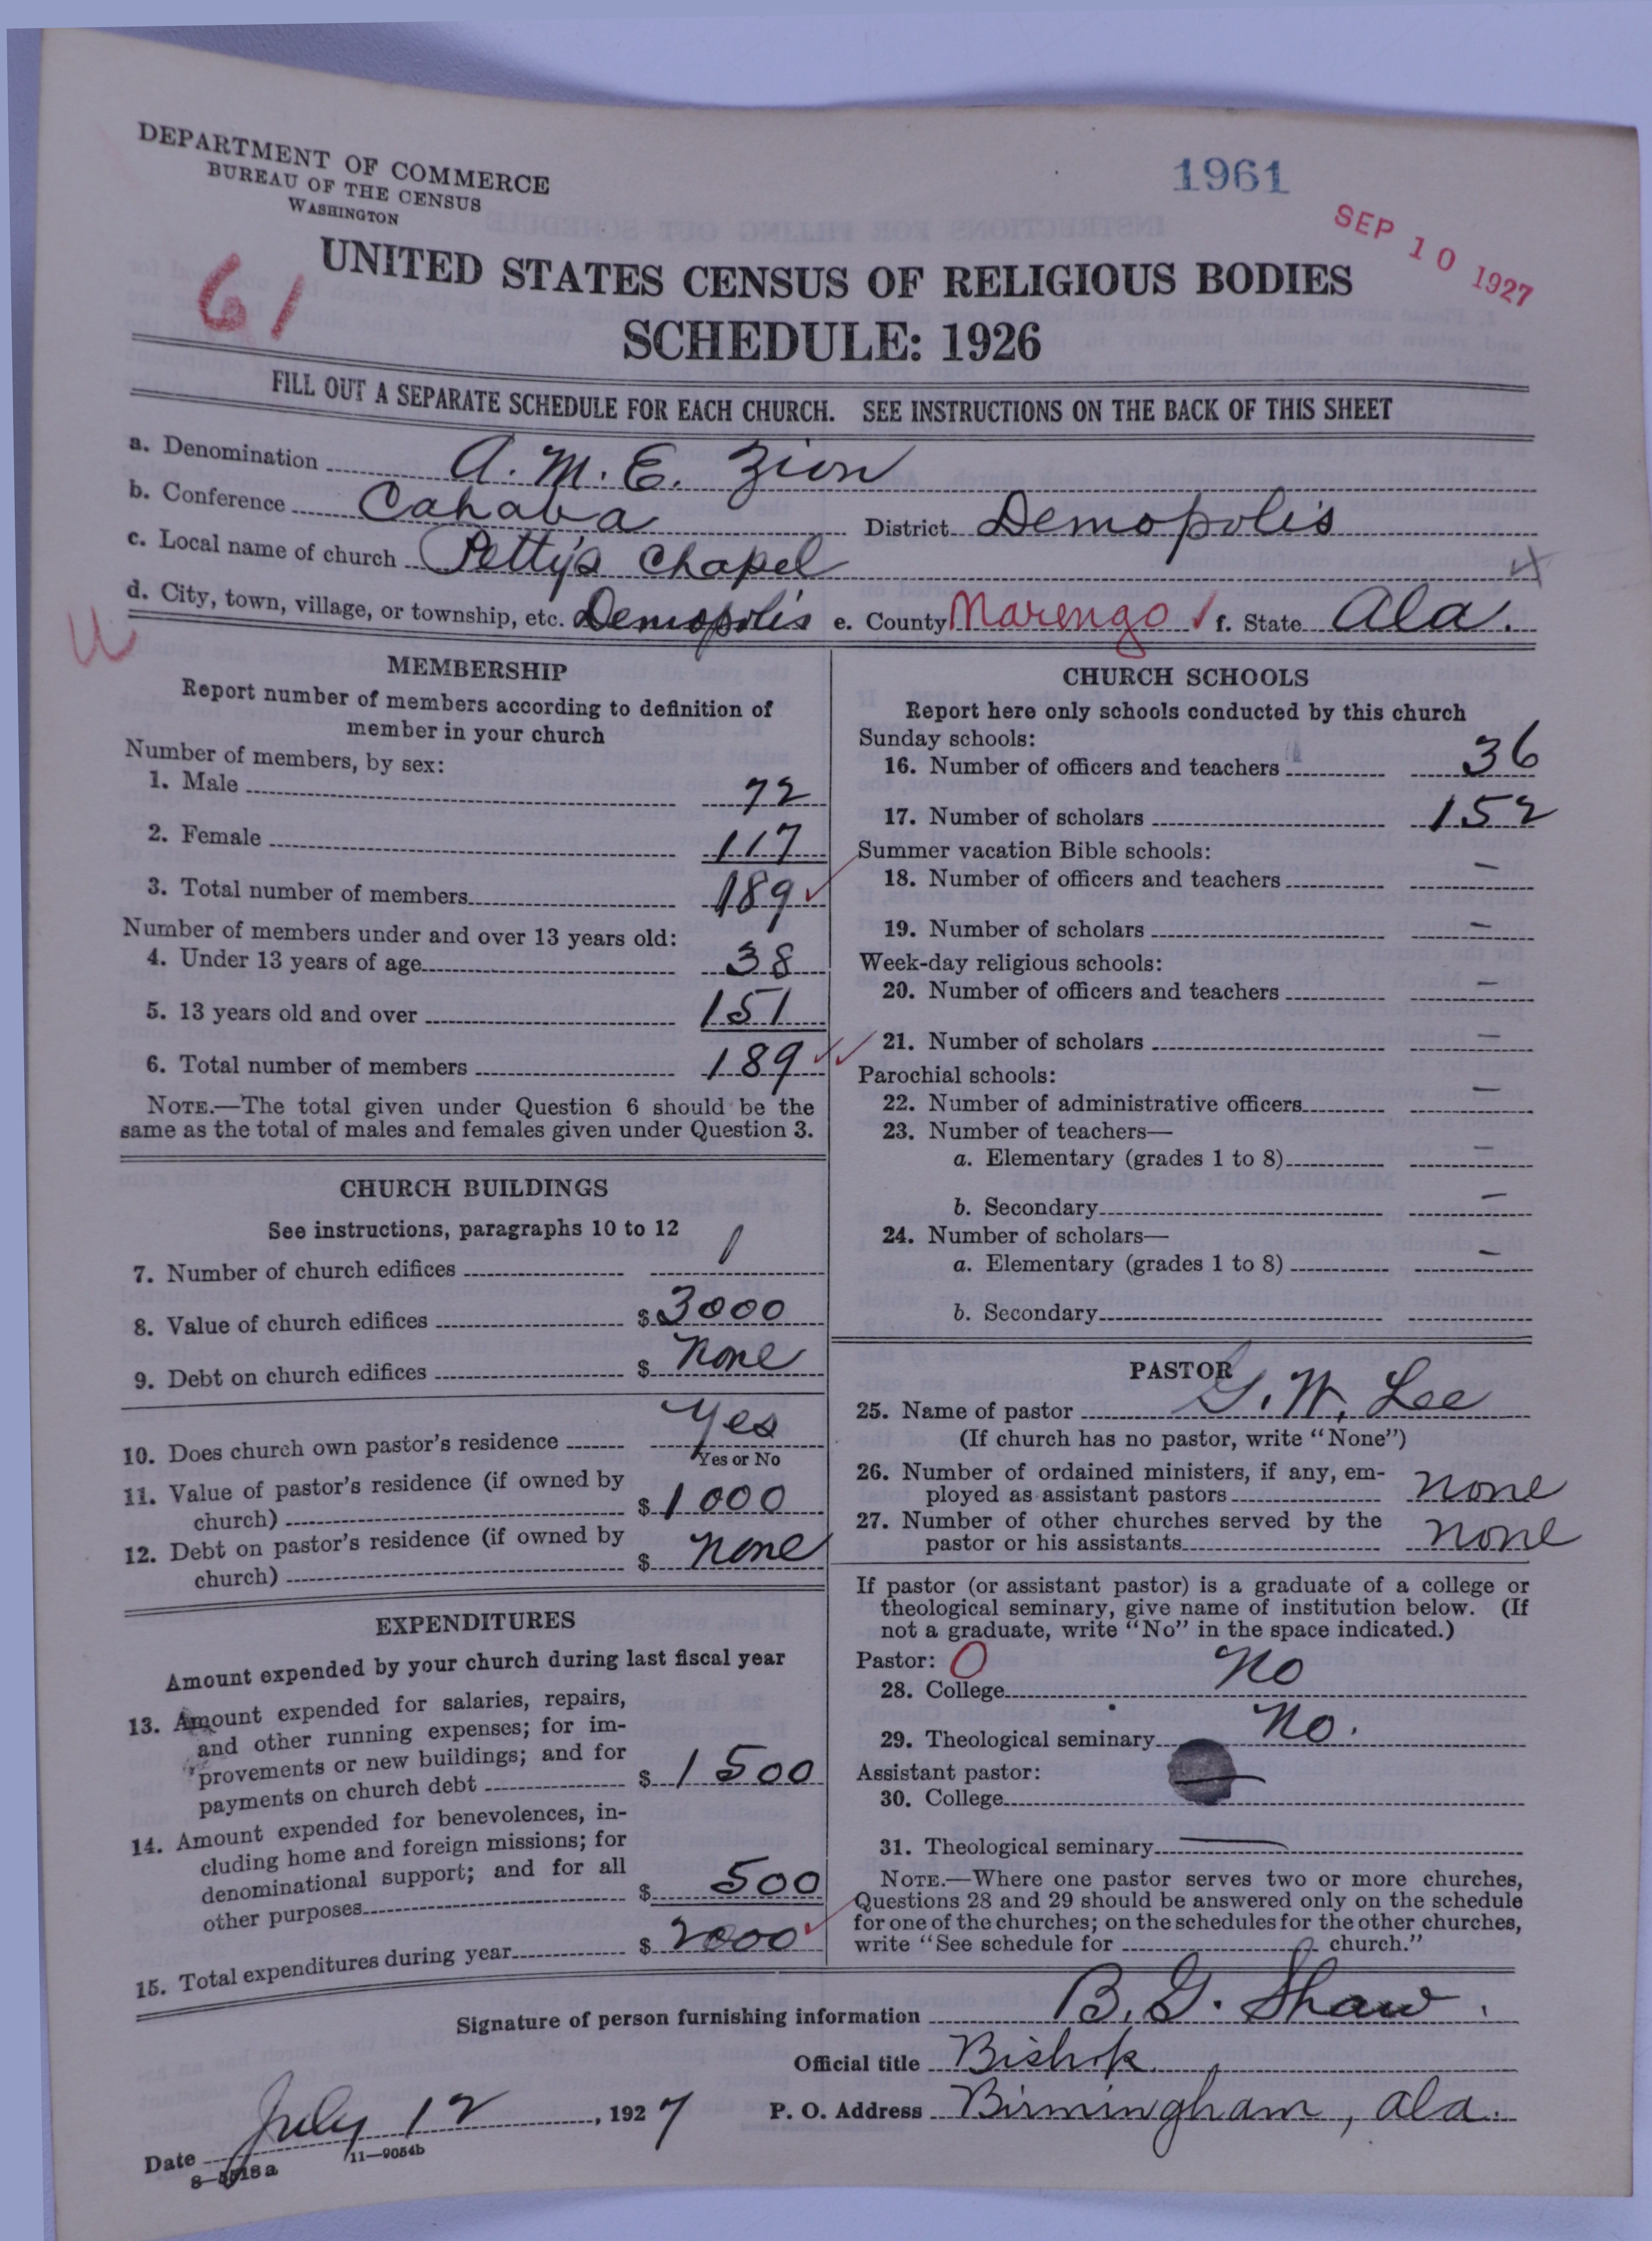 DEPARTMENT OF COMMERCE
BUREAU OF THE CENSUS
WASHINGTON
1961
SEP 10 1927
61
UNITED STATES CENSUS OF RELIGIOUS BODIES
SCHEDULE: 1926
FILL OUT A SEPARATE SCHEDULE FOR EACH CHURCH. SEE INSTRUCTIONS ON THE BACK OF THIS SHEET
a. Denomination A. M. E. Zion
b. Conference Cahaba District Demopolis
c. Local name of church Petty's Chapel
d. City, town, village, or township, etc. Demopolis e. County Marengo f. State Ala.
MEMBERSHIP
Report number of members according to definition of
member in your church
Number of members, by sex:
1. Male 72
2. Female 117
3. Total number of members 189
Number of members under and over 13 years old:
4. Under 13 years of age 38
5. 13 years old and over 151
6. Total number of members 189
NOTE.—The total given under Question 6 should be the
same as the total of males and females given under Question 3.
CHURCH BUILDINGS
See instructions, paragraphs 10 to 12
7. Number of church edifices 1
8. Value of church edifices $3000
9. Debt on church edifices $ none
10. Does church own pastor's residence Yes
Yes or No
11. Value of pastor's residence (if owned by
church) $1000
12. Debt on pastor's residence (if owned by
church) $ none
EXPENDITURES
Amount expended by your church during last fiscal year
13. Amount expended for salaries, repairs,
and other running expenses; for im-
provements or new buildings; and for
payments on church debt $1500
14. Amount expended for benevolences, in-
cluding home and foreign missions; for
denominational support; and for all
other purposes $ 500
15. Total expenditures during year $ 2000
CHURCH SCHOOLS
Report here only schools conducted by this church
Sunday schools:
16. Number of officers and teachers 36
17. Number of scholars 152
Summer vacation Bible schools:
18. Number of officers and teachers —
19. Number of scholars —
Week-day religious schools:
20. Number of officers and teachers —
21. Number of scholars —
Parochial schools:
22. Number of administrative officers —
23. Number of teachers—
a. Elementary (grades 1 to 8) —
b. Secondary —
24. Number of scholars—
a. Elementary (grades 1 to 8) —
b. Secondary
PASTOR
25. Name of pastor G. W. Lee
(If church has no pastor, write "None")
26. Number of ordained ministers, if any, em-
ployed as assistant pastors none
27. Number of other churches served by the
pastor or his assistants none
If pastor (or assistant pastor) is a graduate of a college or
theological seminary, give name of institution below. (If
not a graduate, write "No" in the space indicated.)
Pastor: 0
28. College No
29. Theological seminary No.
Assistant pastor:
30. College —
31. Theological seminary —
NOTE.—Where one pastor serves two or more churches,
Questions 28 and 29 should be answered only on the schedule
for one of the churches; on the schedules for the other churches,
write "See schedule for church."
Signature of person furnishing information B. G. Shaw.
Official title Bishop
Date July 12, 1927 P. O. Address Birmingham, Ala.
8—5518a 11—9054b